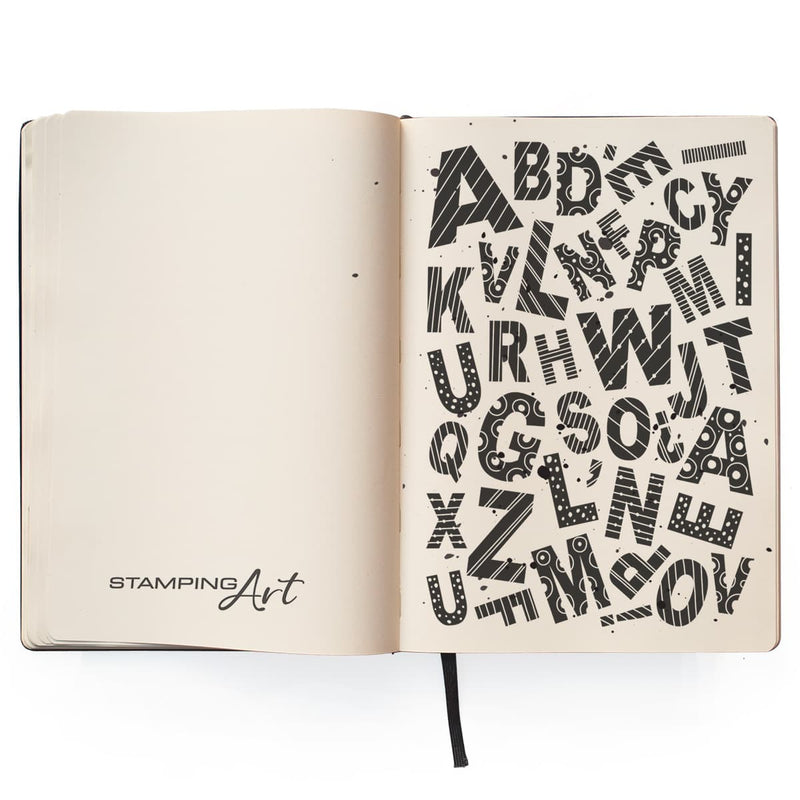 STAMPING Art
A B D ' E I
C Y
K V L N F P M I
U R H W J T
Q G S O C A
X Z L , N E
U F M ! A O V